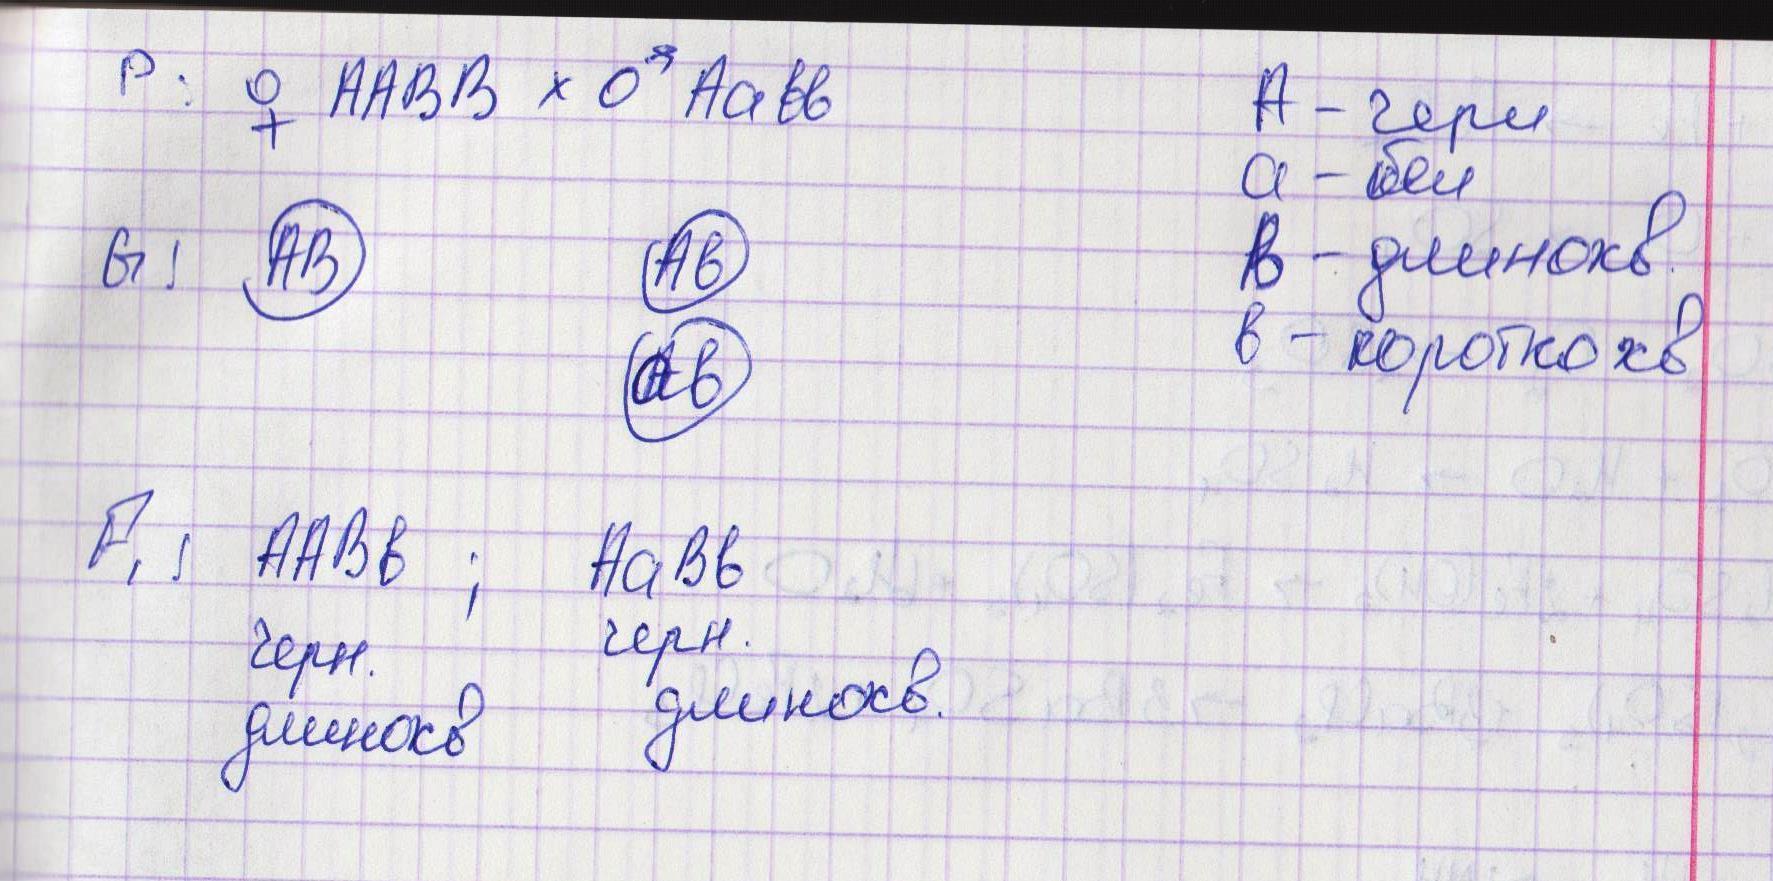 P: ♀ AABB × ♂ Aaвв
G: AB Aв
aв
F₁: AABв ; AaBв
черн. черн.
длинохв длинохв.
A - черн
a - бел
B - длинохв.
в - короткохв